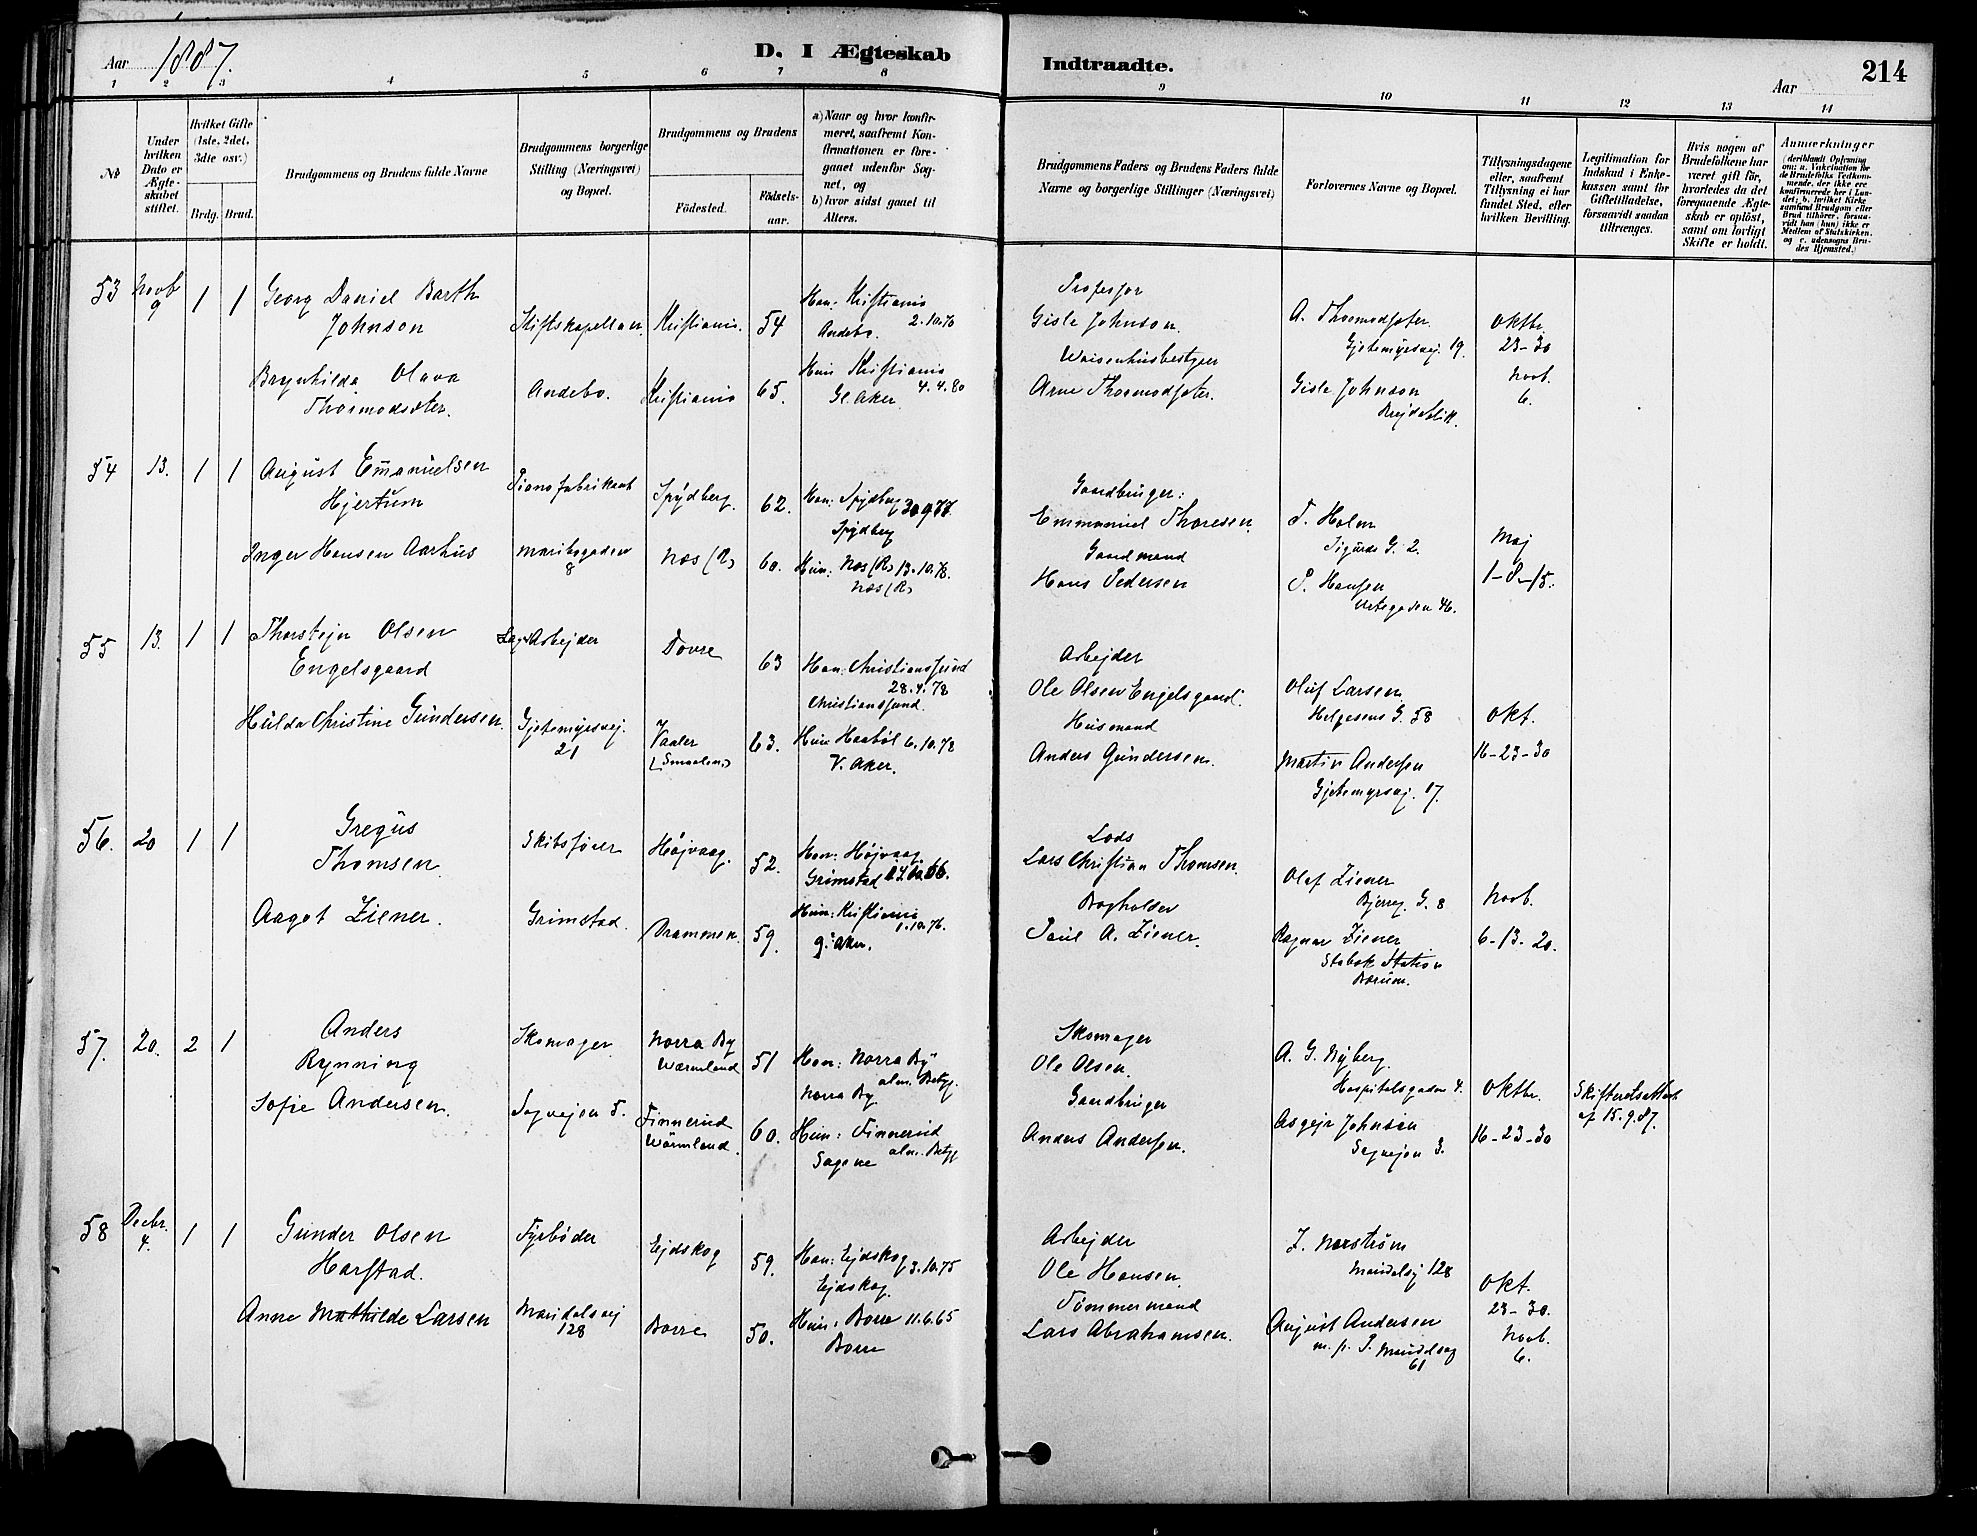 Aar 1887.
D. I Ægteskab
Indtraadte.
Aar
214
1 2 3 4 5 6 7 8 9 10 11 12 13 14
No
Under hvilken Dato er Ægteskabet stiftet.
Hvilket Gifte (1ste, 2det, 3dte osv.)
Brdg. Brud.
Brudgommens og Brudens fulde Navne
Brudgommens borgerlige Stilling (Næringsvei) og Bopæl.
Brudgommens og Brudens
Fødested.
Fødselsaar.
a) Naar og hvor konfirmeret, saafremt Konfirmationen er foregaaet udenfor Sognet, og
b) hvor sidst gaaet til Alters.
Brudgommens Faders og Brudens Faders fulde Navne og borgerlige Stillinger (Næringsvei)
Forlovernes Navne og Bopæl.
Tillysningsdagene eller, saafremt Tillysning ei har fundet Sted, efter hvilken Bevilling.
Legitimation for Indskud i Enkekassen samt for Giftetilladelse, forsaavidt saadan tiltrænges.
Hvis nogen af Brudefolkene har været gift før, hvorledes da det foregaaende Ægteskab er opløst, samt om lovligt Skifte er holdt.
Anmerkninger
(deriblandt Oplysning om: a. Vakcination for de Brudefolks Vedkommende, der ikke ere konfirmerede her i Landet; b. hvilket Kirkesamfund Brudgom eller Brud tilhører, forsaavidt han (hun) ikke er Medlem af Statskirken, og c. udensogns Brudes Hjemsted.)
53 Novb 9 1 1
Georg Daniel Barth
Johnson
Stiftskapellan.
Kristiania.
54
Han: Kristiania
2.10.70
Andebo.
Profesjor
Gisle Johnson.
A. Thormodsæter.
Gjetemyrsvej. 19.
Oktbr.
23-30
Brynhilda Olava
Thormodsæter.
Andebo.
Kristiania
65.
Hun Kristiania
4.4.80
Gl. Aker
Waisenhusbestyrer
Arne Thormodsæter.
Gisle Johnson
Brejdablik.
Novb.
6.
54 13. 1 1
August Emanuelsen
Hjertum
Pianofabrikant
Spydberg.
62.
Han: Spydberg 30.9.77.
Spydberg
Gaardbruger:
Emmanuel Thoresen.
T. Holm
Sigurds G. 2.
Inger Hansen Aarhus
Maribogaden
8
Næs (R)
60.
Hun: Næs (R) 13.10.78.
Næs (R)
Gaardmand
Hans Pedersen
P. Hansen
Urtegaden 46.
Maj
1-8-15.
55 13. 1 1
Thorstejn Olsen
Engelsgaard
Arbejder
Dovre
63
Han: Christianssund
28.4.78
Christianssund.
Arbejder
Ole Olsen Engelsgaard.
Oluf Larsen
Helgesens G. 58
Hulda Christine Gundersen.
Gjetemyrsvej.
21
Vaaler
(Smaalen.)
63.
Hun Haabøl 6.10.78
V. Aker.
Husmand
Anders Gundersen.
Martin Andersen
Gjetemyrsvej. 17.
Okt.
16-23-30
56. 20 1 1
Gregus
Thomsen.
Skibsfører
Højvaag.
52.
Han: Højvaag.
Grimstad
Lods
Lars Christian Thomsen.
Olaf Ziener
Bjerreg. G. 8
Aagot Ziener.
Grimstad.
Drammen.
59.
Hun: Kristiania
1.10.76.
g: Aker.
Bogholder
Paul A. Ziener.
Ragnar Ziener
Stabæk Station
Bærum.
Novb.
6-13-20.
57. 20. 2 1
Anders
Rynning
Skomager
Norra By
Wærmland
51
Han: Norra By
alm. Betyg.
Norra By
Skomager
Ole Olsen.
A. G. Nyberg.
Hospitalsgaden 4.
Sofie Andersen.
Sagvejen 5.
Finnerud
Wärmland.
60.
Hun: Finnerud
alm. Betyg
Sagene
Gaardbruger
Anders Andersen.
Asgejr Johnsen
Sagvejen 3.
Oktbr.
16-23-30
Skifteretsattest
af 15.9.87.
58 Decbr. 4. 1 1
Gunder Olsen
Harstad.
Fyrbøder
Ejdskog
59.
Han: Ejdskog 3.10.75
Ejdskog.
Arbejder
Ole Hansen.
Z. Norstrøm
Maridalsvj 128
Anne Mathilde Larsen
Maridalsvej
128
Borre
50.
Hun: Borre 11.6.65
Borre
Tømmermand
Lars Abrahamsen.
August Andersen
61
Okt.
23-30.
Novb.
6.